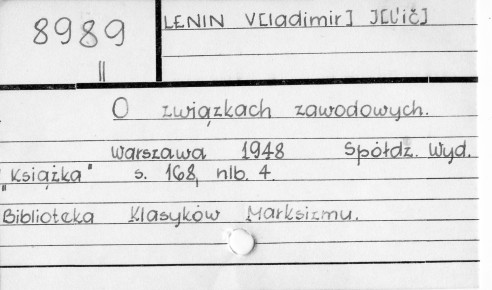 8989
II
LENIN V[ladimir] J[l'ič]
O związkach zawodowych.
Warszawa 1948 Spółdz. Wyd.
"Książka" s. 168, nlb. 4.
Biblioteka Klasyków Marksizmu.